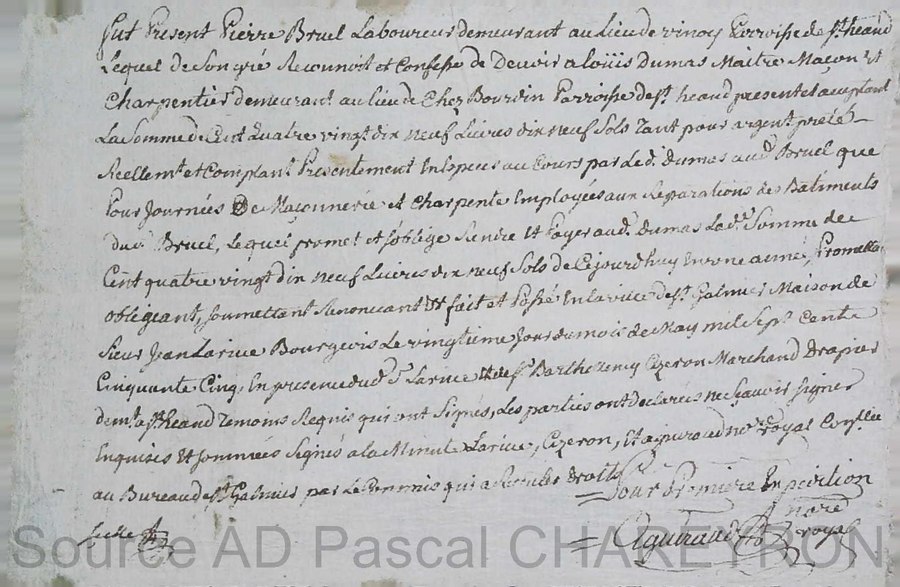 fut Present Pierre Bruel Laboureur demeurant au Lieu de vinoy Parroisse de st. heand
Lequel de Son gré Reconnoit et Confesse de Devoir a loüis Dumas Maitre Maçon Et
Charpentier demeurant au lieu de Chez Bourdin Parroisse de st. heand present et acceptant
La Somme de Cent Quatre vingt dix neuf Livres dix neuf Sols Tant pour argent preté
Reellemt. et Comptant Presentement En Especes au Cours par Led. Dumas aud. Bruel que
Pour Journées De Maçonnerie et Charpente Employées aux Reparations des Bâtiments
dud. Bruel, Lequel promet et s'oblige Rendre Et Payer aud. Dumas Lad. Somme de
Cent quatre vingt dix neuf Livres dix neuf Sols de Cejourdhuy En une année, Promettant
obligeant, soumettant Renonceant Et fait et Passé En la ville de st. Galmier Maison de
Sieur Jean Larive Bourgeois Le vingtieme Jour du mois de May mil Sept Cents
Cinquante Cinq, En presence dud. Sr. Larive Et de Sr. Barthelemy Cizeron Marchand drapier
demt. a st. heand Temoins Requis qui ont Signés, Les parties ont declarées ne Sçavoir signer
Enquises Et Sommées Signés a la Minute Larive, Cizeron, Et aguiraud nore. royal Conllée
au Bureau de st. Galmier par Le Commis qui a Recu les droits
Pour Premiere Expedition
Aguiraud nore royal
Source AD Pascal CHAREYRON